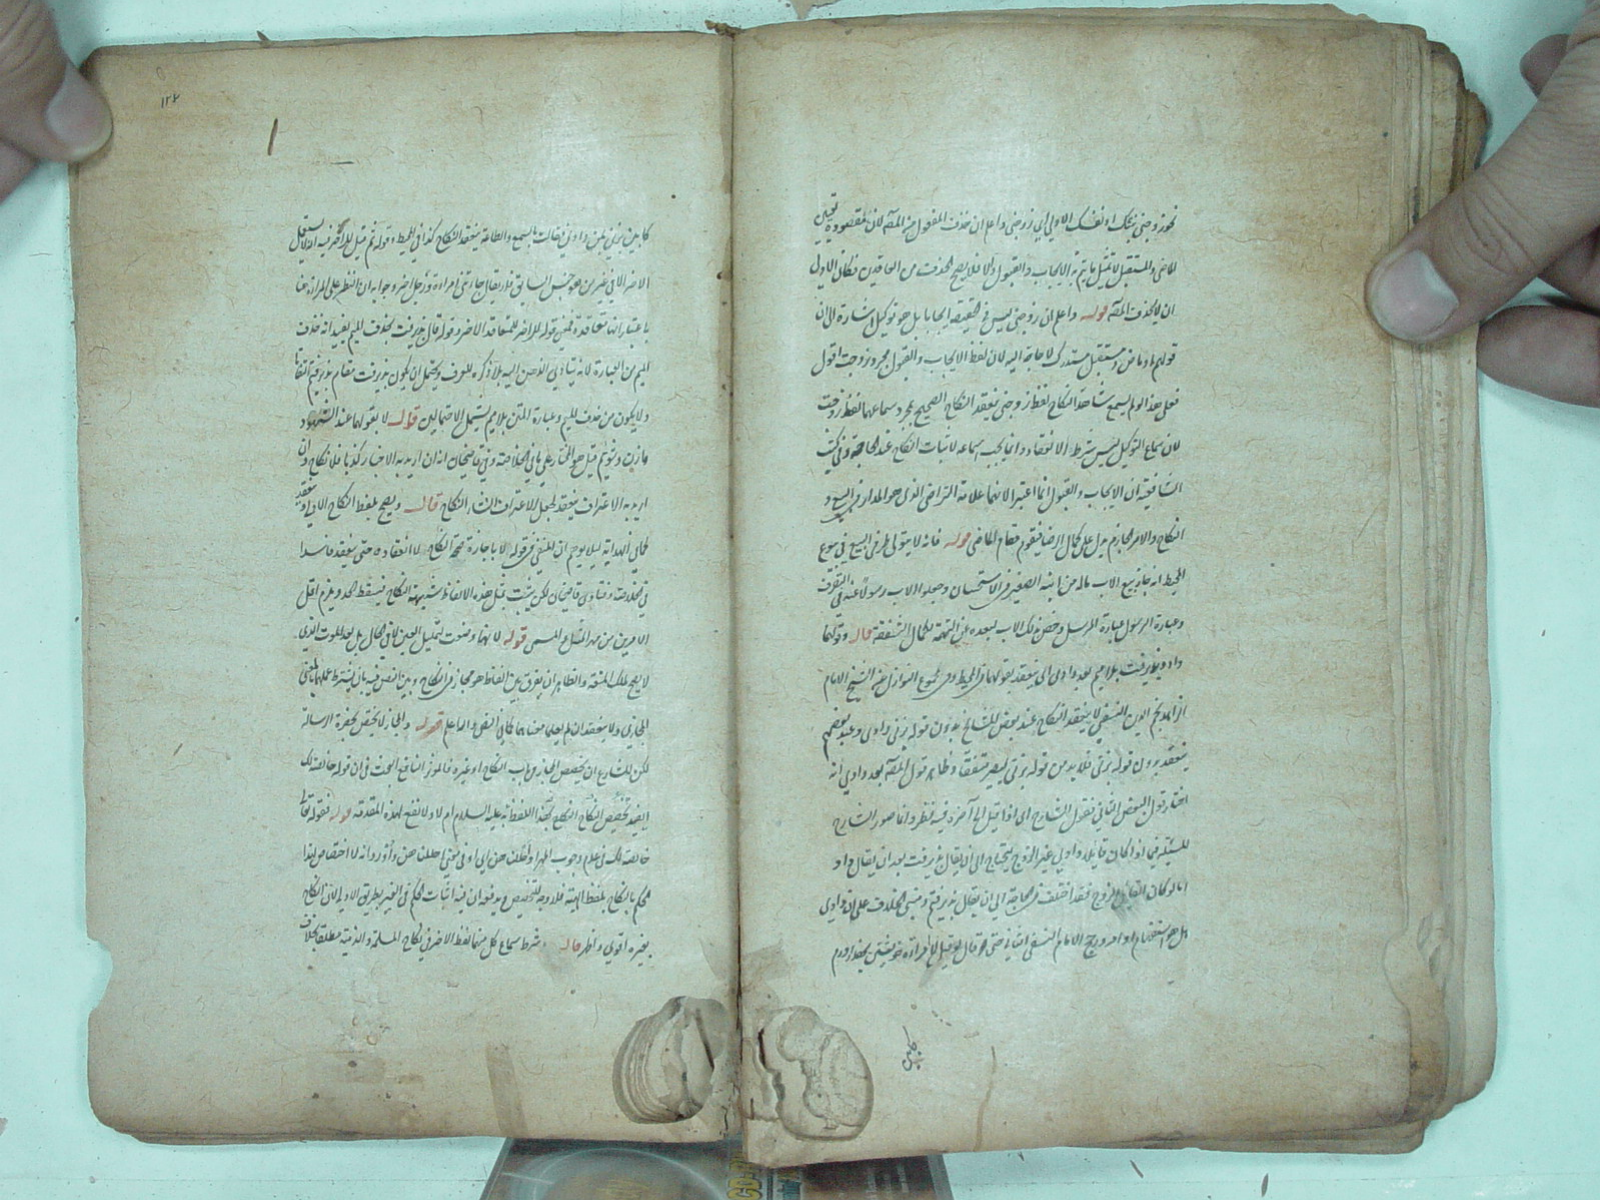 نحو زوجني بنتك او نفسك الاولى اي زوجني واعلم ان حذف المفعول من المصه لان المقصود به تعيين
الماضي والمستقبل لا تمثيل ما يتم به الايجاب والقبول والا فلا يصح الحذف من العاقدين فكان الاولى
ان لا يحذف المصه قوله واعلم ان زوجني ليس في الحقيقة ايجابا بل هو توكيل اشارة الى ان
قولهم او ماض ومستقبل مستدرك لا حاجة اليه لان لفظ الايجاب والقبول مجرد زوجت اقول
فعلى هذا لو لم يسمع شاهدا النكاح لفظ زوجني ينعقد النكاح الصحيح بمجرد سماعهما لفظ زوجت
لان سماع التوكيل ليس بشرط الانعقاد وانما يجب سماعه لاثبات النكاح عند الحاجة وفي كتب
الشافعية ان الايجاب والقبول انما اعتبرا لانهما علامة التراضي الذي هو المدار في البيع و
النكاح والامر الجازم يدل على كمال الرضا فيقوم مقام الماضي قوله فانه لا يتولى طرفي البيع في بيوع
المحيط انه جاز بيع الاب ماله من ابنه الصغير في الاستحسان وجعلوا الاب رسولا عنه في التصرف
وعبارة الرسول عبارة المرسل وخص ذلك الاب لبعده عن التهمة لكمال الشفقة قال وقولهما
داد وپذيرفت بلا ميم بعد دادي اي ينعقد بقولهما في المحيط وفي مجموع النوازل عن الشيخ الامام
الزاهد نجم الدين النسفي لا ينعقد النكاح عند بعض المشايخ بدون قوله بزني دادي وعند بعضهم
ينعقد بدون قوله بزني فلا بد من قوله بزني ليصير متفقا وظاهر قول المصه بعد دادي انه
اختار قول البعض الثاني فقول الشارح اي اذا قيل الى آخره فيه نظر وانما صور الشارح
المسئلة فيما اذا كان قائل دادي غير الزوج ليحتاج الى ان يقال پذيرفت بعد ان يقال داد
اما لو كان القائل الزوج فقد اختلف في الحاجة الى ان يقال پذيرفتم ومبنى الخلاف على ان دادي
هل هو استفهام او امر ورجح الامام النسفي الثاني حتى قال لو قيل لامرأة خويشتن بهزار درم
كابين بمن بزني دادي فقالت بالسمع والطاعة ينعقد النكاح كذا في المحيط وقوله ثم قيل للآخر فيه ان لا يستعمل
الآخر الا في غير من هو جنس السابق فلا يقال جاءتني امراة ورجل آخر وجوابه ان النظر على المراة هنا
باعتبار انها متعاقدة فمعنى قوله للآخر للمتعاقد الآخر وقوله قال پذيرفت بحذف الميم يفيد انه حذف
الميم من العبارة لانه يتبادر الذهن اليه بلا ذكره للعرف ويحتمل ان يكون پذيرفت مقام پذيرفتم اتفاقا
ولا يكون من حذف الميم وعبارة المتن بلا ميم يشمل الاحتمالين قوله لا بقولهما عند الشهود
ما زن وشوئيم قيل هو المختار على ما في الخلاصة وفي قاضيخان انه ان اريد به الاخبار كذبا فلا نكاح وان
اريد به الاعتراف ينعقد لجعل الاعتراف انشاء النكاح قال ويصح بلفظ النكاح الاولى وينعقد
كما في الهداية لئلا يوهم ان المنفي في قوله لا باجازة صحة النكاح لا انعقاده حتى ينعقد فاسدا
في الخلاصة وفتاوى قاضيخان لكن يثبت بمثل هذه الالفاظ شبهة النكاح فيسقط الحد ويلزم اقل
الامرين من مهر المثل والمسمى قوله لانها وضعت لتمليك العين لا في الحال بل بعد الموت الذي
لا يصح ملك المتعة والظاهر ان يفرق بين الفاظ هو مجاز في النكاح وبين النص فيه بان يشترط علمهما بالمعنى
المجازي ولا ينعقد ان لم يعلما معناهما كما في النص والله اعلم قوله والمجاز لا يختص بحضرة الرسالة
لكن للشارع ان يخصص المجاز في باب النكاح او غيره فالموز النافع البحث في ان قوله خالصة لك
ايفيد تخصيص النكاح بهذا اللفظ به عليه السلام ام لا ولا نفع لهذه المقدمة قوله فقوله تعالى
خالصة لك في عدم وجوب المهر او احللن حق اي او في معنى احللن حق واورد انه لا اختصاص لهذا
الحكم بالنكاح بلفظ الهبة فلا وجه للتخصيص ويدفع ان فيه اثبات الحكم في الغير بطريق الاولى لان النكاح
بغيره اقوى واظهر قال وشرط سماع كل منهما لفظ الآخر في نكاح المسلمة والذمية مطلقا بخلاف
١٢٤